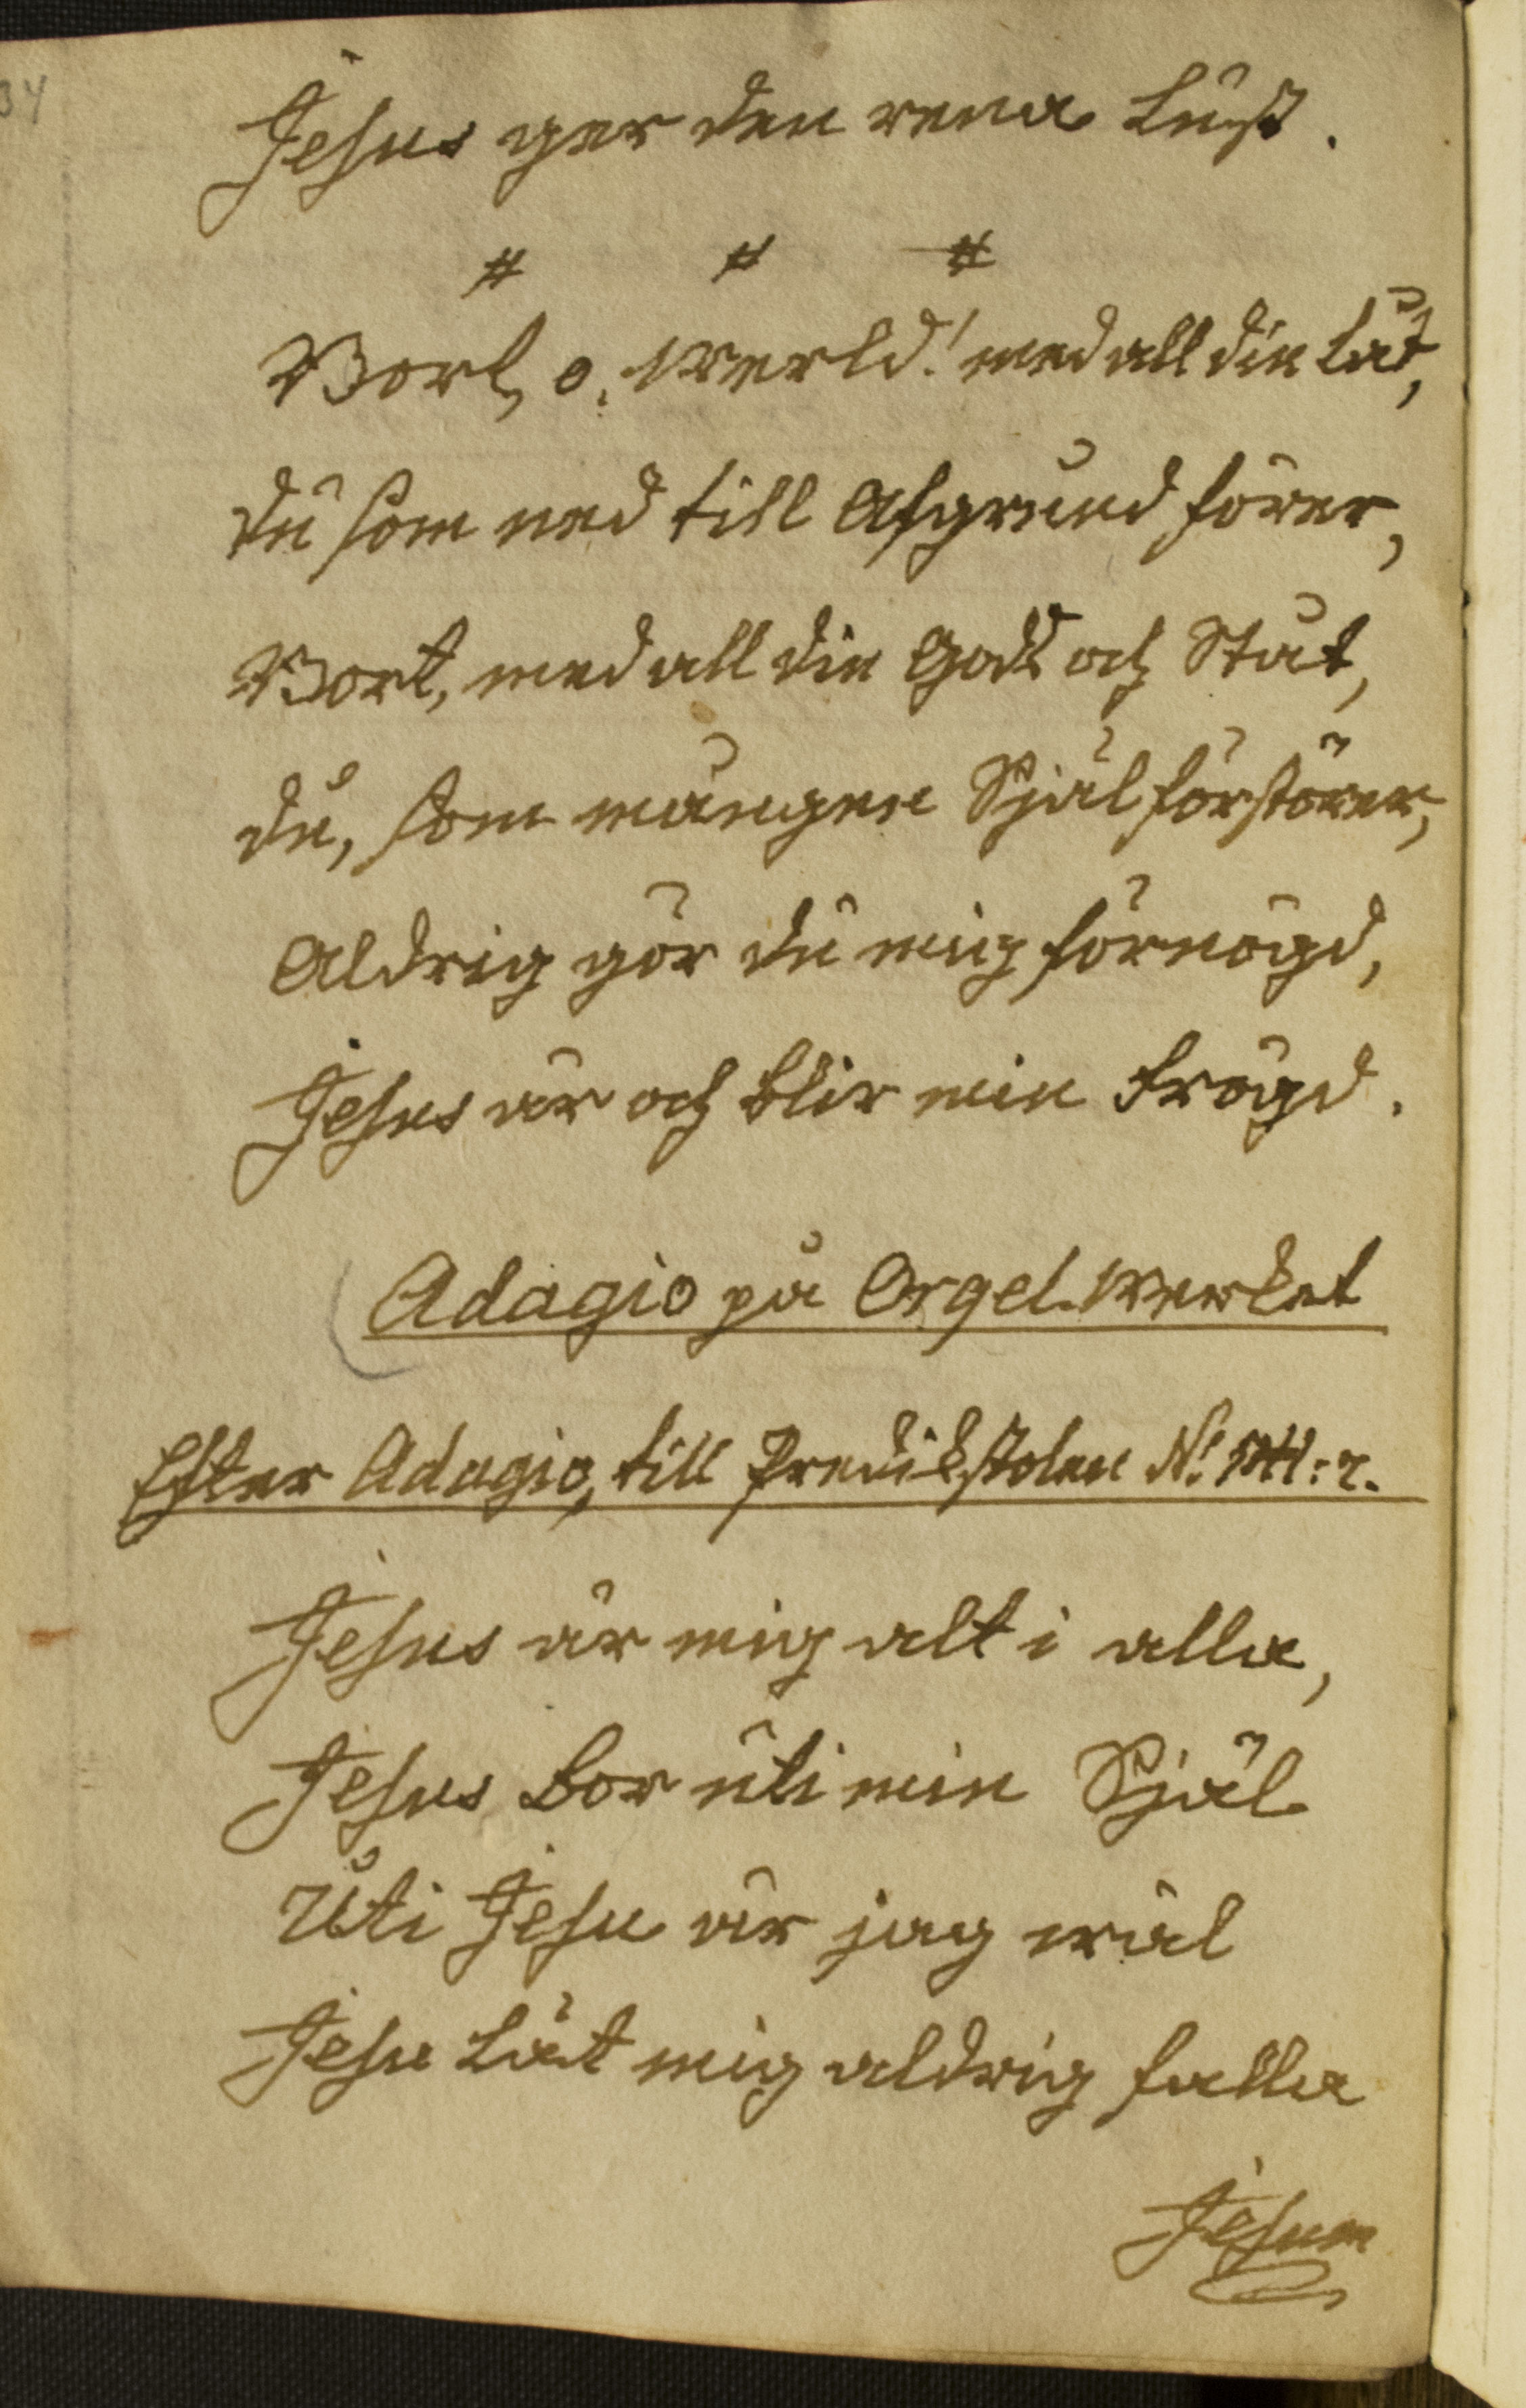 34
Jesus ger den rena Lust.
# # #
Bort, o, Werld! med all din Låt,
du som ned till Afgrund förer,
Bort, med all din Gods och Ståt,
du, som mången Själ förstörer,
Aldrig gör du mig förnögd,
Jesus är och blir min Frögd.
Adagio på Orgel-Werket
Efter Adagio, till Predikstolen N:
Jesus är mig alt i alla,
Jesus bor uti min Själ
Uti Jesu är jag wäl
Jesu Låt mig aldrig falla
Jesum